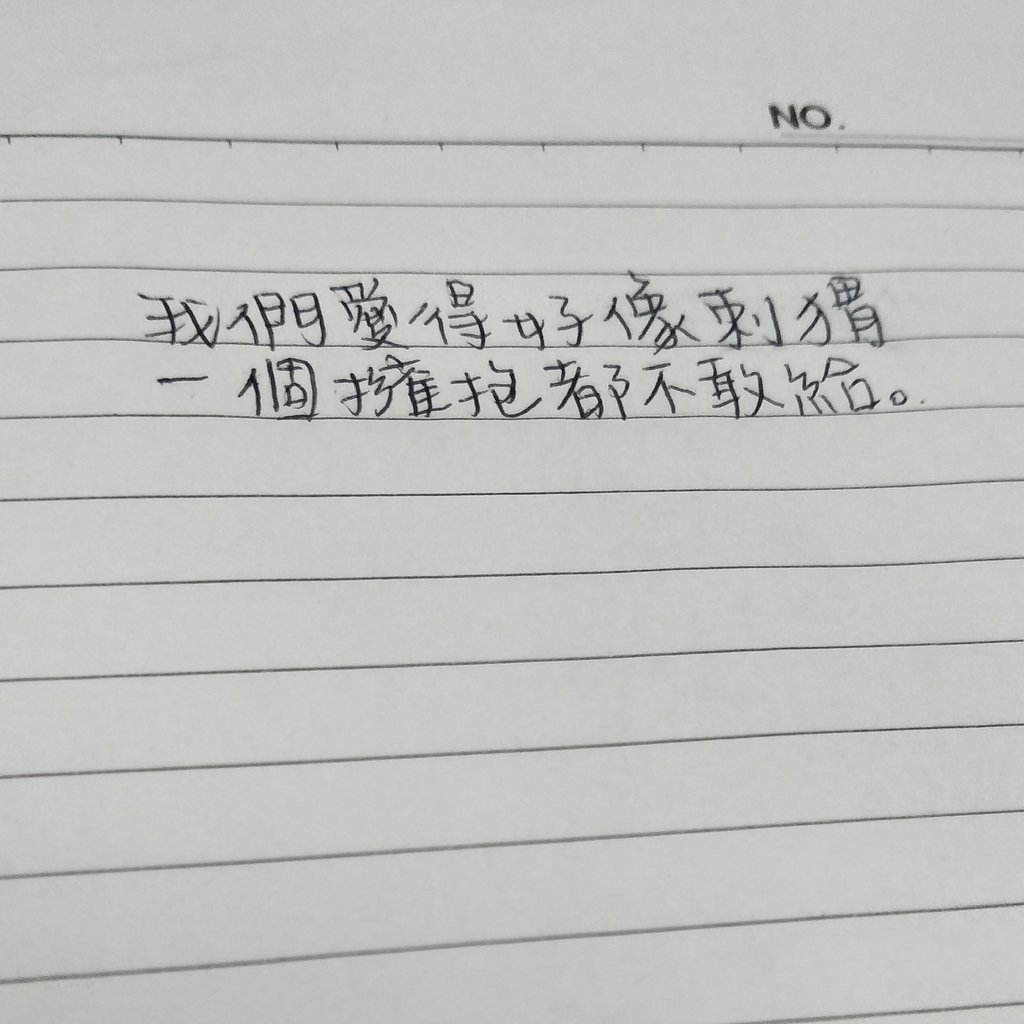 NO.
我們愛得好像刺猬
一個擁抱都不敢給。